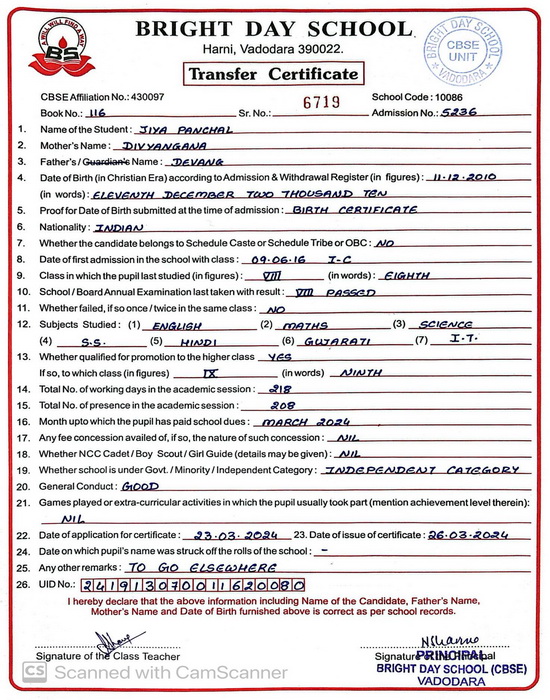 A WILL WILL FIND A WAY
BS
BRIGHT DAY SCHOOL
Harni, Vadodara 390022.
Transfer Certificate
BRIGHT DAY SCHOOL
CBSE
UNIT
VADODARA
CBSE Affiliation No.: 430097
6719
School Code : 10086
Book No.: 116
Sr. No.:
Admission No.: 5236
1. Name of the Student : JIYA PANCHAL
2. Mother's Name : DIVYANGANA
3. Father's / Guardian's Name : DEVANG
4. Date of Birth (in Christian Era) according to Admission & Withdrawal Register (in figures) : 11·12·2010
(in words) : ELEVENTH DECEMBER TWO THOUSAND TEN
5. Proof for Date of Birth submitted at the time of admission : BIRTH CERTIFICATE
6. Nationality : INDIAN
7. Whether the candidate belongs to Schedule Caste or Schedule Tribe or OBC : NO
8. Date of first admission in the school with class : 09·06·16 I-C
9. Class in which the pupil last studied (in figures) : VIII (in words) : EIGHTH
10. School / Board Annual Examination last taken with result : VIII PASSED
11. Whether failed, if so once / twice in the same class : NO
12. Subjects Studied : (1) ENGLISH (2) MATHS (3) SCIENCE
(4) S.S. (5) HINDI (6) GUJARATI (7) I.T.
13. Whether qualified for promotion to the higher class YES
If so, to which class (in figures) IX (in words) NINTH
14. Total No. of working days in the academic session : 218
15. Total No. of presence in the academic session : 208
16. Month upto which the pupil has paid school dues : MARCH 2024
17. Any fee concession availed of, if so, the nature of such concession : NIL
18. Whether NCC Cadet / Boy Scout / Girl Guide (details may be given) : NIL
19. Whether school is under Govt. / Minority / Independent Category : INDEPENDENT CATEGORY
20. General Conduct : GOOD
21. Games played or extra-curricular activities in which the pupil usually took part (mention achievement level therein):
NIL
22. Date of application for certificate : 23·03·2024 23. Date of issue of certificate : 26·03·2024
24. Date on which pupil's name was struck off the rolls of the school : -
25. Any other remarks : TO GO ELSEWHERE
26. UID No.: 241913070011620080
I hereby declare that the above information including Name of the Candidate, Father's Name,
Mother's Name and Date of Birth furnished above is correct as per school records.
Signature of the Class Teacher
Signature of the Principal
PRINCIPAL
BRIGHT DAY SCHOOL (CBSE)
VADODARA
CS Scanned with CamScanner